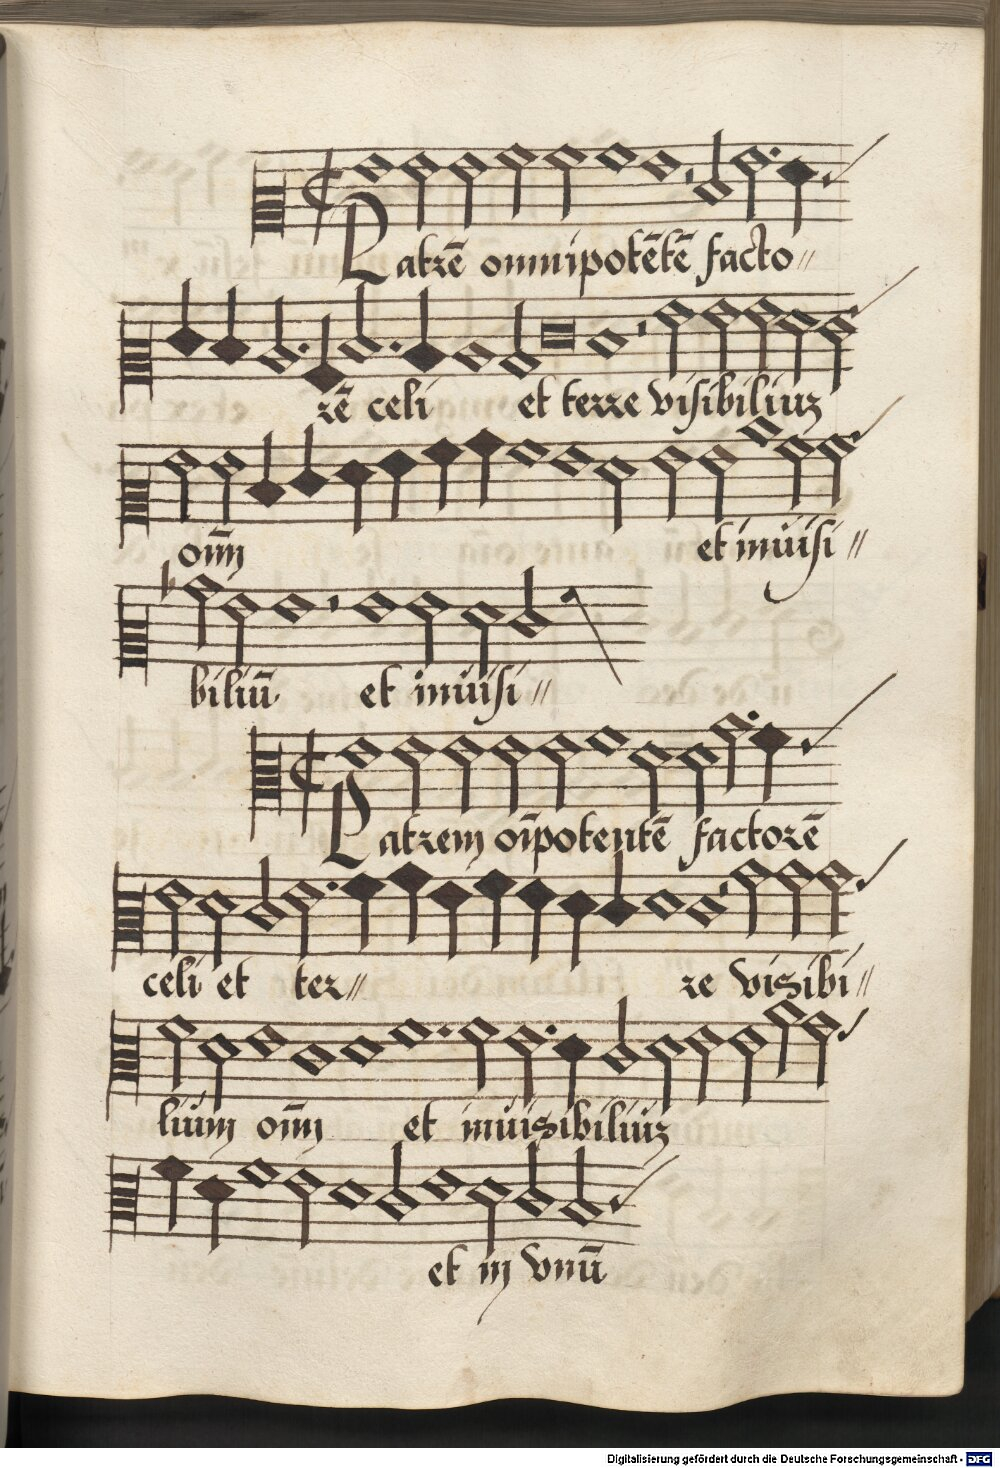 Patrē omnipotētē facto〃
rē celi et terre visibiliuꝫ
oīm et inuisi〃
biliū et inuisi〃
Patrem oīpotentē factorē
celi et ter〃 re visibi〃
lium oīm et inuisibiliuꝫ
et in vnū
Digitalisierung gefördert durch die Deutsche Forschungsgemeinschaft - DFG